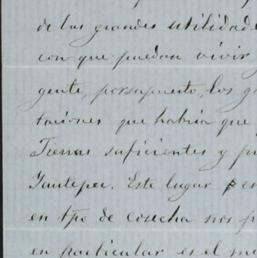 de las grandes utilidade
con que puedan vivir
gente, por supuesto, los g
taciones que habia que
Tierras suficientes y p
Yautepec. Este lugar es
en tpo de cosecha nos p
en particular es el m